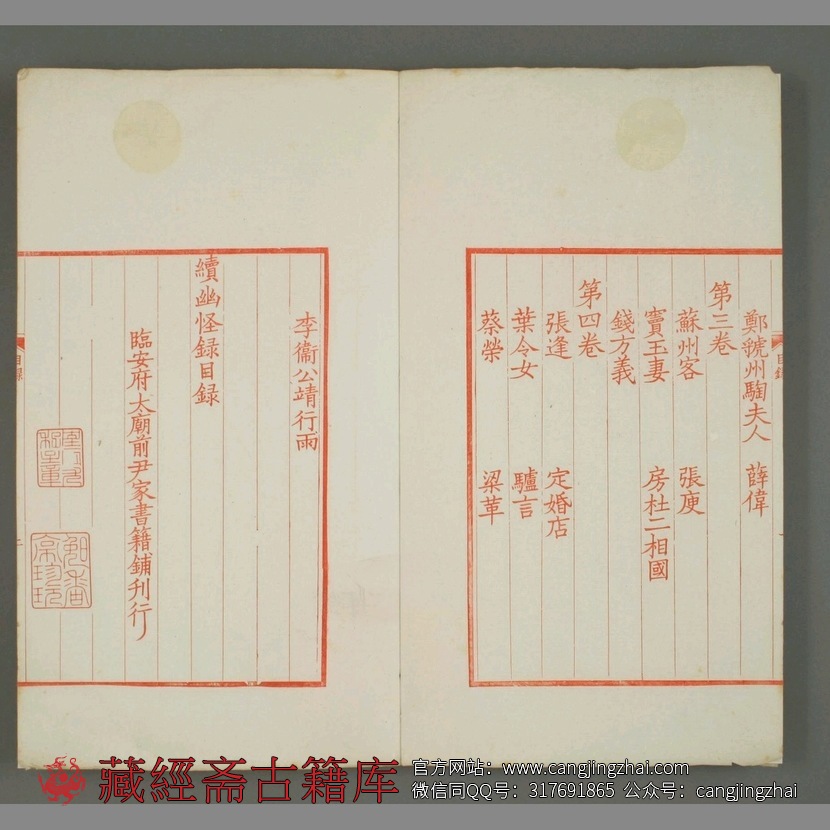 鄭虢州騊夫人 薛偉
第三卷
蘇州客 張庾
竇玉妻 房杜二相國
錢方義
第四卷
張逢 定婚店
葉令女 驢言
蔡榮 梁革
李衞公靖行雨
續幽怪録目録
臨安府太廟前尹家書籍鋪刊行
目録
藏經斋古籍库
官方网站：www.cangjingzhai.com
微信同QQ号：317691865 公众号：cangjingzhai